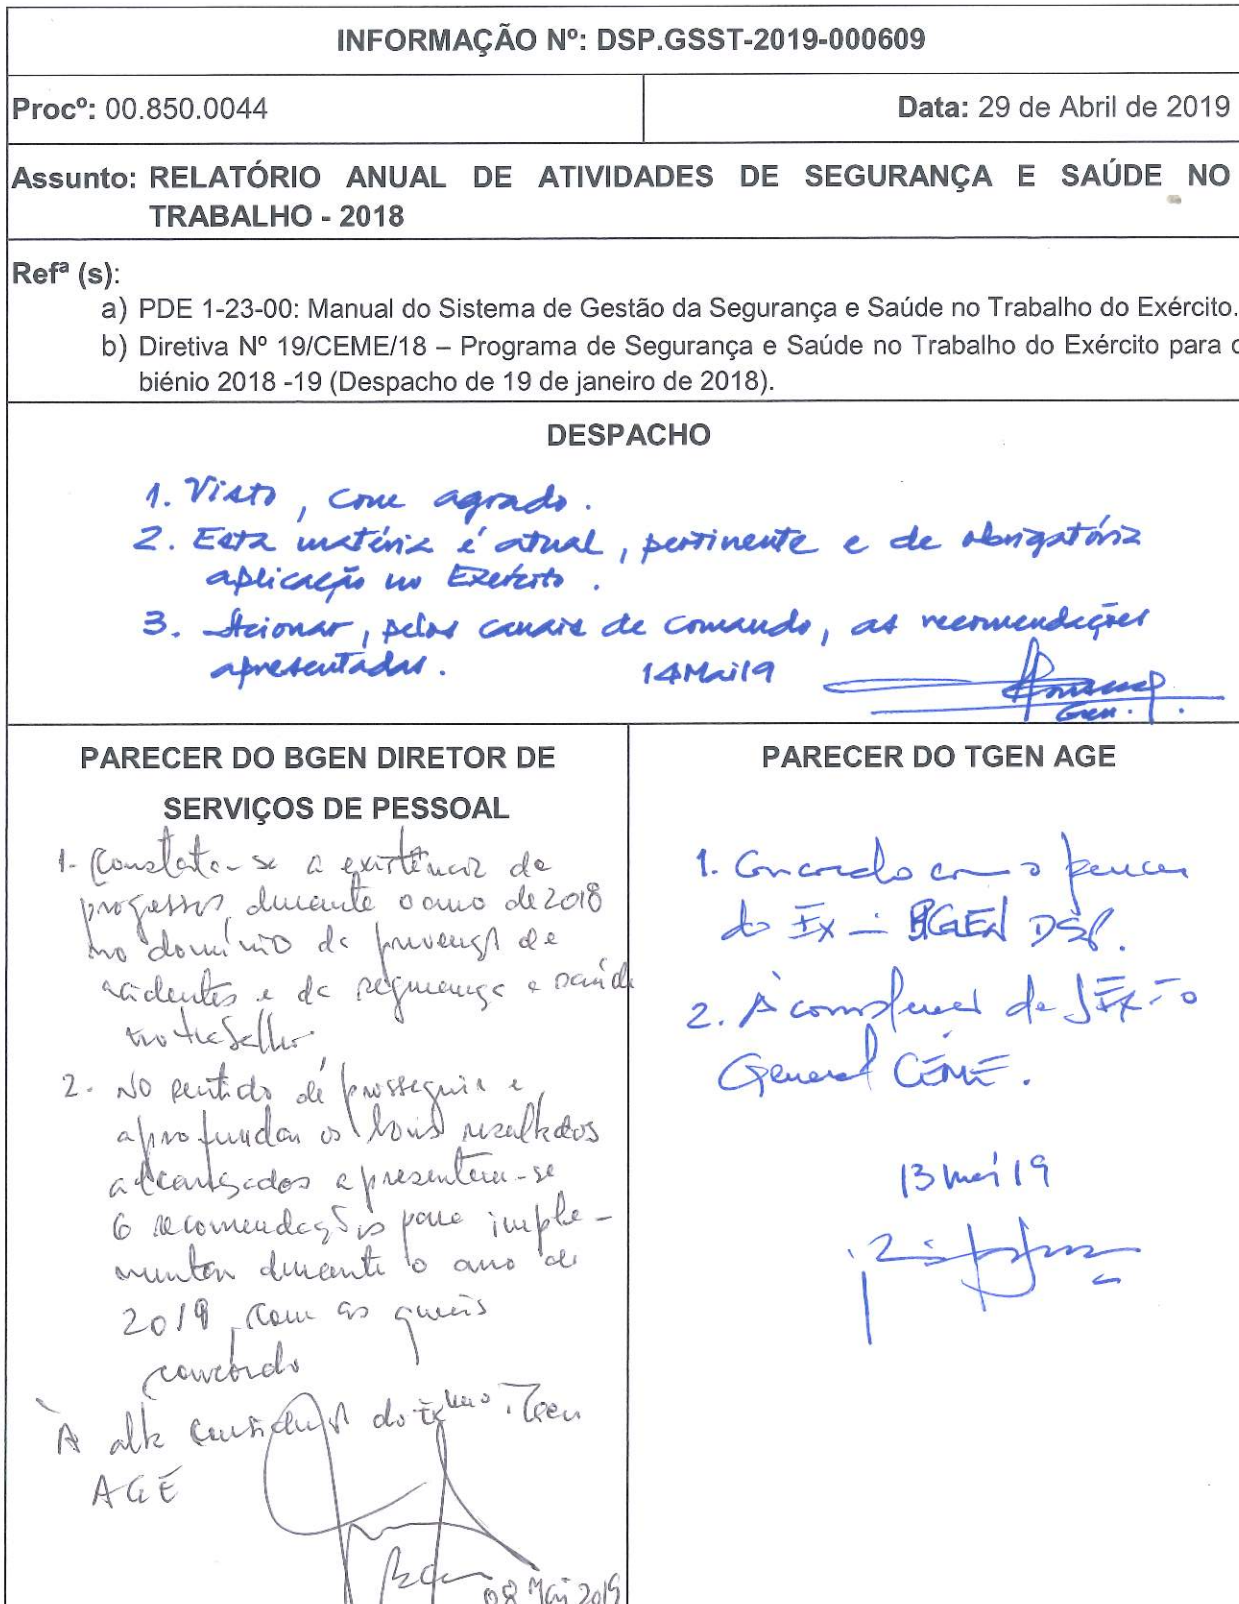 INFORMAÇÃO Nº: DSP.GSST-2019-000609
Procº: 00.850.0044
Data: 29 de Abril de 2019
Assunto: RELATÓRIO ANUAL DE ATIVIDADES DE SEGURANÇA E SAÚDE NO
TRABALHO - 2018
Refª (s):
a) PDE 1-23-00: Manual do Sistema de Gestão da Segurança e Saúde no Trabalho do Exército.
b) Diretiva Nº 19/CEME/18 – Programa de Segurança e Saúde no Trabalho do Exército para o
biénio 2018 -19 (Despacho de 19 de janeiro de 2018).
DESPACHO
1. Visto, com agrado.
2. Esta matéria é atual, pertinente e de obrigatória
aplicação no Exército.
3. Acionar, pelos canais de comando, as recomendações
apresentadas. 14Mai19
Gen.
PARECER DO BGEN DIRETOR DE
SERVIÇOS DE PESSOAL
1- Constata-se a existência de
progressos, durante o ano de 2018
no domínio da prevenção de
acidentes e da segurança e saúde
no trabalho
2. No sentido de prosseguir e
aprofundar os bons resultados
alcançados apresentam-se
6 recomendações para imple-
mentar durante o ano de
2019, com as quais
concordo
À alta consideração do Exmo Tgen
AGE
BGen
08 Mai 2019
PARECER DO TGEN AGE
1. Concordo com o parecer
do Ex- BGEN DSP.
2. À consideração de SEx- o
General CEME.
13 mai 19